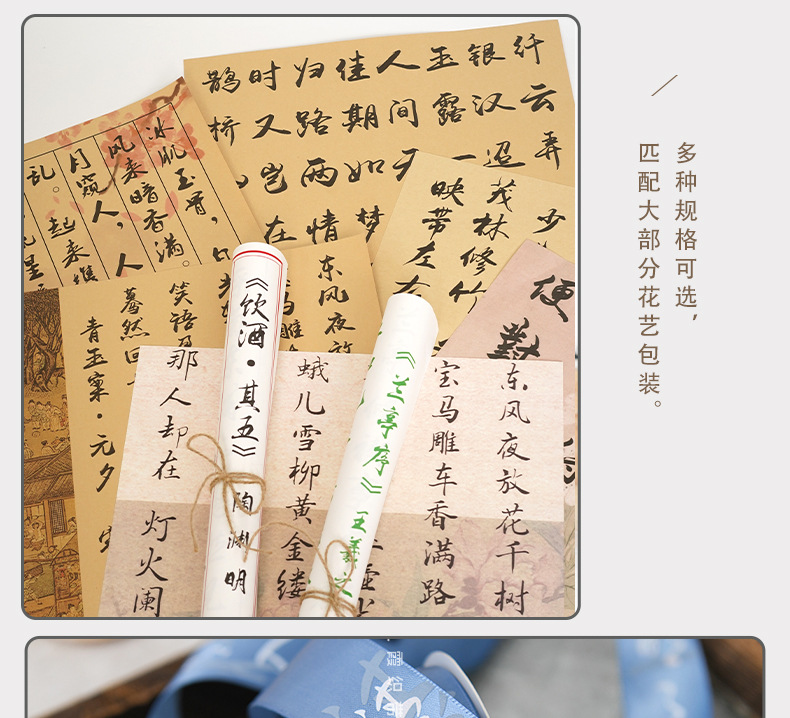 多种规格可选，
匹配大部分花艺包装。
纤云弄
银汉迢
玉露一
人间天
佳期如梦
归路两情
时又岂在
鹊桥
冰肌玉骨，
风来暗香满。
月窥人，人
乱。起来携
少
茂林修竹
映带左右
便
對
东风夜放
马雕
笑语
蓦然回
青玉案·元夕
《饮酒·其五》陶渊明
《兰亭序》王羲之
东风夜放花千树
宝马雕车香满路
蛾儿雪柳黄金缕
那人却在
灯火阑
霞织